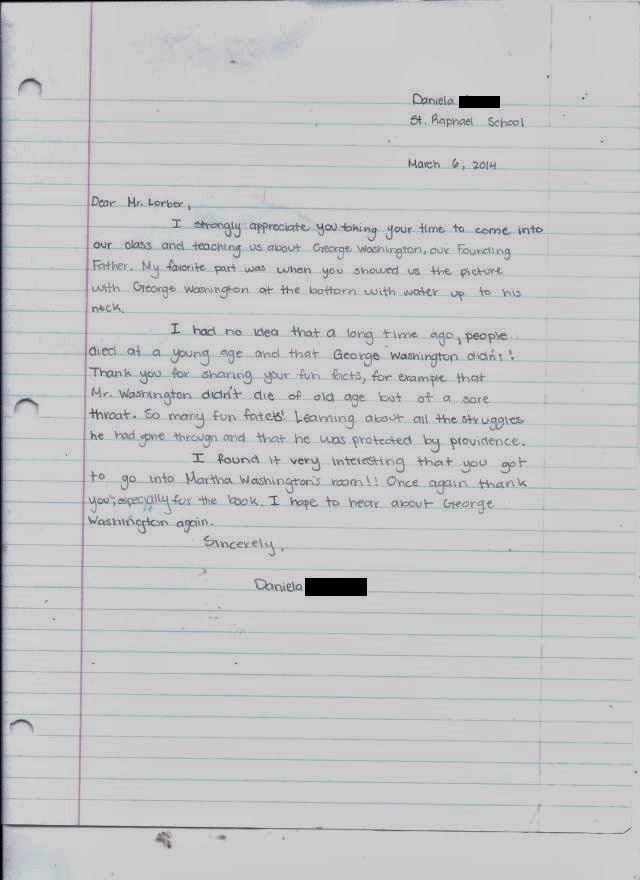 Daniela
St. Raphael School
March 6, 2014
Dear Mr. Lorber,
I strongly appreciate you taking your time to come into
our class and teaching us about George Washington, our Founding
Father. My favorite part was when you showed us the picture
with George Washington at the bottom with water up to his
neck.
I had no idea that a long time ago, people
died at a young age and that George Washington didn't!
Thank you for sharing your fun facts, for example that
Mr. Washington didn't die of old age but of a sore
throat. So many fun fatcts! Learning about all the struggles
he had gone through and that he was protected by providence.
I found it very interesting that you got
to go into Martha Washington's room!! Once again thank
you, especially for the book. I hope to hear about George
Washington again.
Sincerely,
Daniela